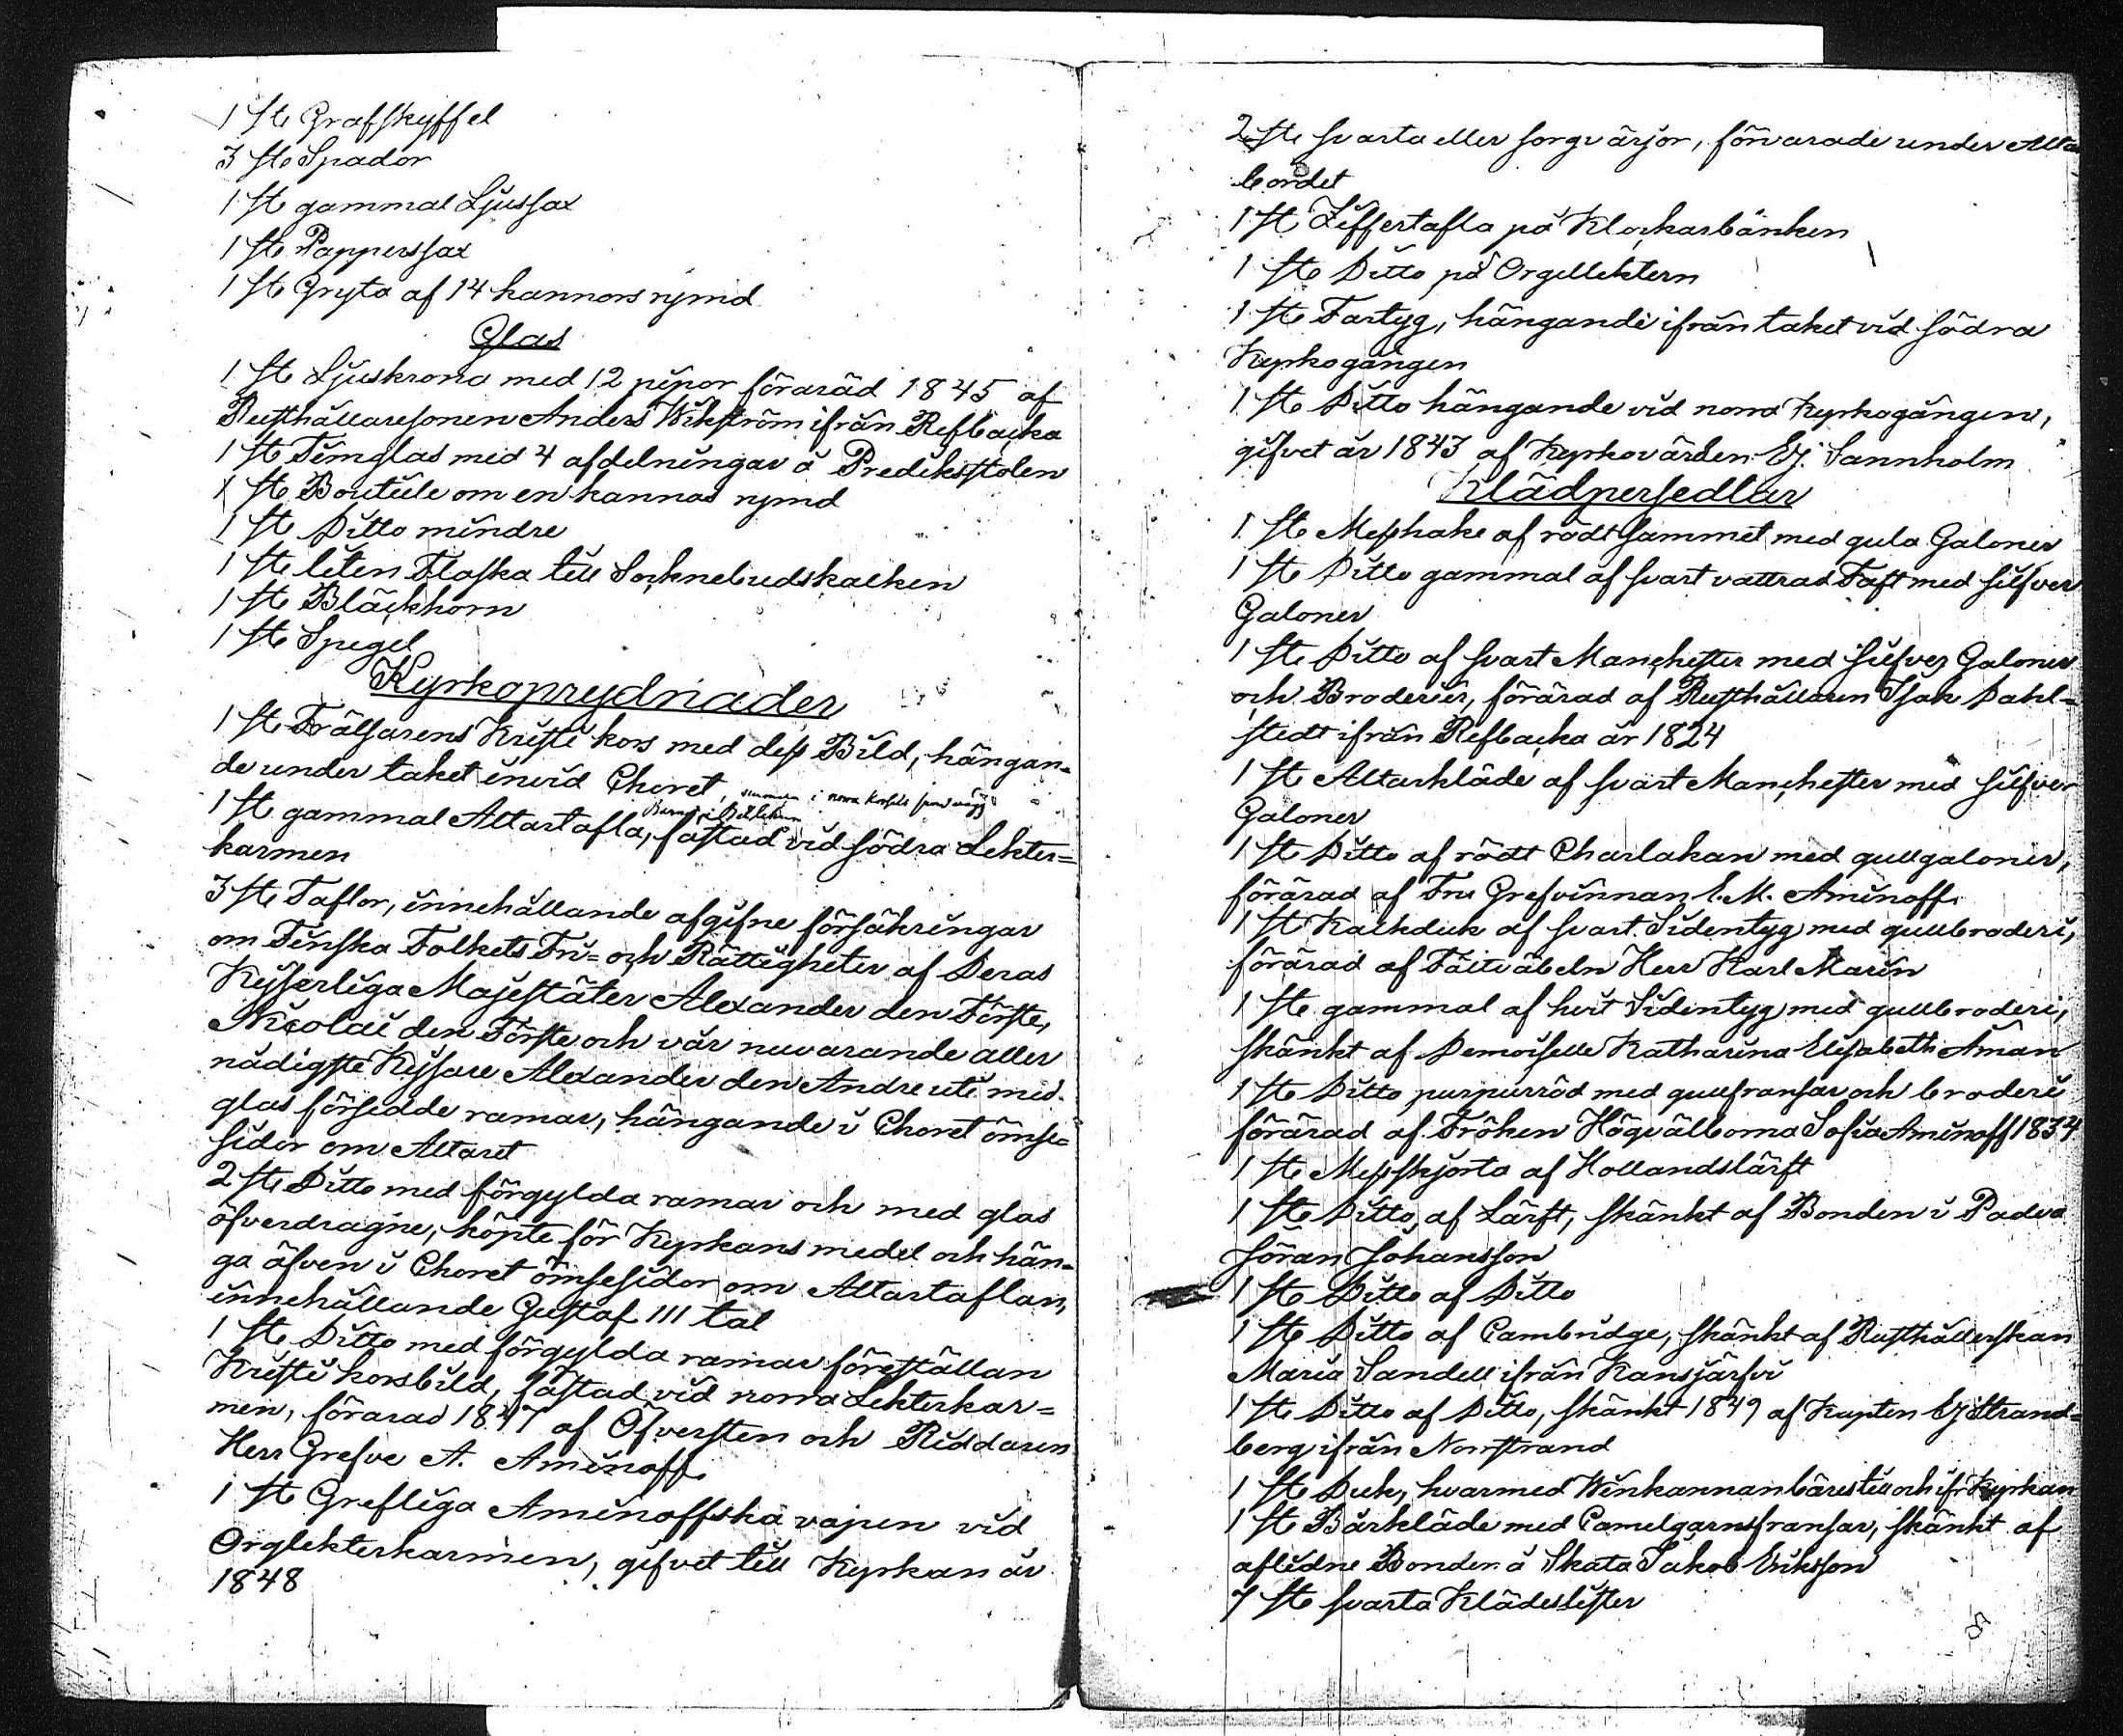 1 st Grafskyffel
3 st Spador
1 st gammal Ljussax
1 st Papperssax
1 st Gryta af 14 kannors rymd
Glas
1 st Ljuskrona med 12 pipor förärad 1845 af
Rusthållaresonen Anders Wikström ifrån Refbacka
1 st Timglas med 4 afdelningar å Predikstolen
1 st Bouteile om en kannas rymd
1 st Ditto mindre
1 st liten Flaska till Socknebudskalken
1 st Bläckhorn
1 st Spegel
Kyrkoprydnader
1 st Frälsarens Kristi kors med dess Bild, hängan=
de under taket invid Choret, i norra
Barnen i Betlehem
1 st gammal Altartafla, fästad vid södra Lekter=
karmen
3 st Taflor, innehållande afgifne försäkringar
om Finska Folkets Fri= och Rättigheter af Deras
Kejserliga Majestäter Alexander den Förste,
Nicolai den Förste och vår nuvarande aller
nådigste Kejsare Alexander den Andre uti med
glas försedde ramar, hängande i Choret ömse=
sidor om Altaret
2 st Ditto med förgylda ramar och med glas
öfverdragne, köpte för Kyrkans medel och hän=
ga äfven i Choret ömsesidor om Altartaflan,
innehållande Gustaf III tal
1 st Ditto med förgylda ramar föreställan
Kristi korsbild, fästad vid norra Lekterkar=
men, förärad 1847 af Öfversten och Riddaren
Herr Grefve A. Aminoff.
1 st Grefliga Aminoffska vapen vid
Orglekterkarmen, gifvet till Kyrkan år
1848
2 st svarta eller sorgvärjor, förvarade under Alta
bordet
1 st Ziffertafla på Klockarbänken
1 st Ditto på Orgellektern
1 st Fartyg, hängande ifrån taket vid södra
Kyrkogången
1 st Ditto hängande vid norra Kyrkogången,
gifvet år 1843 af Kyrkovärden Ej. Sannholm
Klädpersedlar
1 st Messhake af rödt Sammet med gula Galoner
1 st Ditto gammal af svart vattrad Taft med silfver
Galoner
1 st Ditto af svart Manchester med silfver Galoner
och Broderier, förärad af Rusthållaren Isak Dahl=
stedt ifrån Refbacka år 1824
1 st Altarkläde af svart Manchester med silfver
Galoner
1 st Ditto af rödt Charlakan med gullgaloner,
förärad af Fru Grefvinnan E. M. Aminoff.
1 st Kalkduk af svart Sidentyg med gullbroderi,
förärad af Herr Karl Marin
1 st gammal af hvit Sidentyg med gullbroderi,
skänkt af Demoiselle Katharina Elisabeth Åman
1 st Ditto purpurröd med gullfransar och broderi
förärad af Fröken Högvälborna Sofia Aminoff 1834
1 st Messskjorta af Hollandslärft
1 st Ditto af Lärft, skänkt af Bonden i Padva
Göran Johansson
1 st Ditto af Ditto
1 st Ditto af Cambridge, skänkt af Rusthållerskan
Maria Sandell ifrån Kansjärfvi
1 st Ditto af Ditto, skänkt 1849 af Kapten Ej Strand=
berg ifrån Norrstrand
1 st Duk, hvarmed Winkannan bäres till och ifr Kyrkan
1 st Bårkläde med Camelgarnsfransar, skänkt af
aflidne Bonden å Skata Jakob Eriksson
7 st svarta Klädeslister